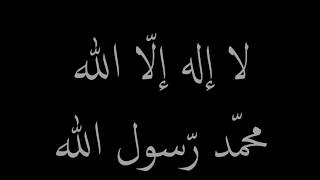 لا إله إلّا الله
محمّد رّسول الله